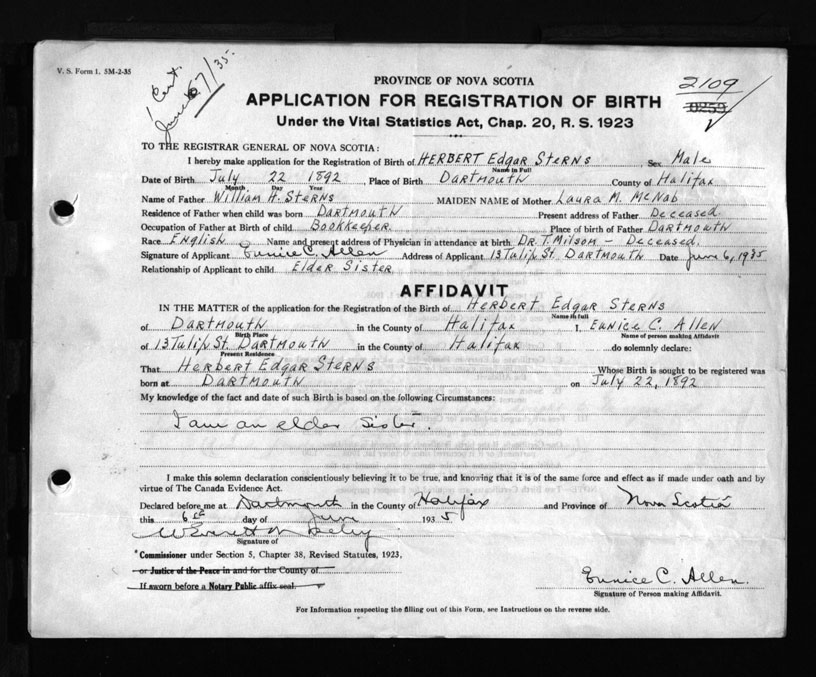 V. S. Form 1. 5M-2-35
1 Cert.
June 7/35.
2109
0259
PROVINCE OF NOVA SCOTIA
APPLICATION FOR REGISTRATION OF BIRTH
Under the Vital Statistics Act, Chap. 20, R. S. 1923
TO THE REGISTRAR GENERAL OF NOVA SCOTIA:
I hereby make application for the Registration of Birth of HERBERT Edgar Sterns Sex Male
Name in Full
Date of Birth July 22 1892, Place of Birth DARTMOUTH County of Halifax
Month Day Year
Name of Father William H. Sterns MAIDEN NAME of Mother Laura M. McNab
Residence of Father when child was born DARTMOUTH Present address of Father Deceased
Occupation of Father at Birth of child Bookkeeper. Place of birth of Father DARTMOUTH
Race English Name and present address of Physician in attendance at birth Dr. T. Milsom – Deceased.
Signature of Applicant Eunice C. Allen Address of Applicant 13 Tulip St. DARTMOUTH Date June 6, 1935
Relationship of Applicant to child Elder Sister
AFFIDAVIT
IN THE MATTER of the application for the Registration of the Birth of Herbert Edgar Sterns
Name in full
of DARTMOUTH in the County of Halifax I, Eunice C. Allen
Birth Place Name of person making Affidavit
of 13 Tulip St. DARTMOUTH in the County of Halifax do solemnly declare:
Present Residence
That Herbert Edgar Sterns Whose Birth is sought to be registered was
born at DARTMOUTH on July 22, 1892
My knowledge of the fact and date of such Birth is based on the following Circumstances:
I am an elder sister.
I make this solemn declaration conscientiously believing it to be true, and knowing that it is of the same force and effect as if made under oath and by
virtue of The Canada Evidence Act.
Declared before me at Dartmouth in the County of Halifax and Province of Nova Scotia
this 6th day of June 1935
Signature of
*Commissioner under Section 5, Chapter 38, Revised Statutes, 1923,
or Justice of the Peace in and for the County of
If sworn before a Notary Public affix seal.
Eunice C. Allen.
Signature of Person making Affidavit.
For Information respecting the filling out of this Form, see Instructions on the reverse side.